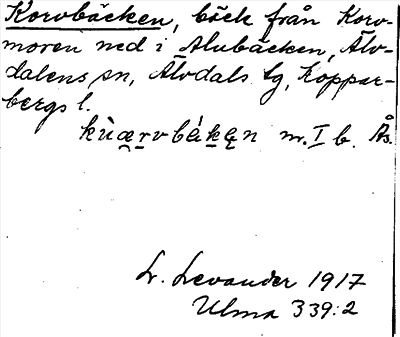 Korvbäcken, bäck från Korv-
moren ned i Alubäcken, Älv-
dalens sn, Älvdals tg, Koppar-
bergs l.
kùærvbèkęn m. I b. Ås.
L. Levander 1917
Ulma 339:2